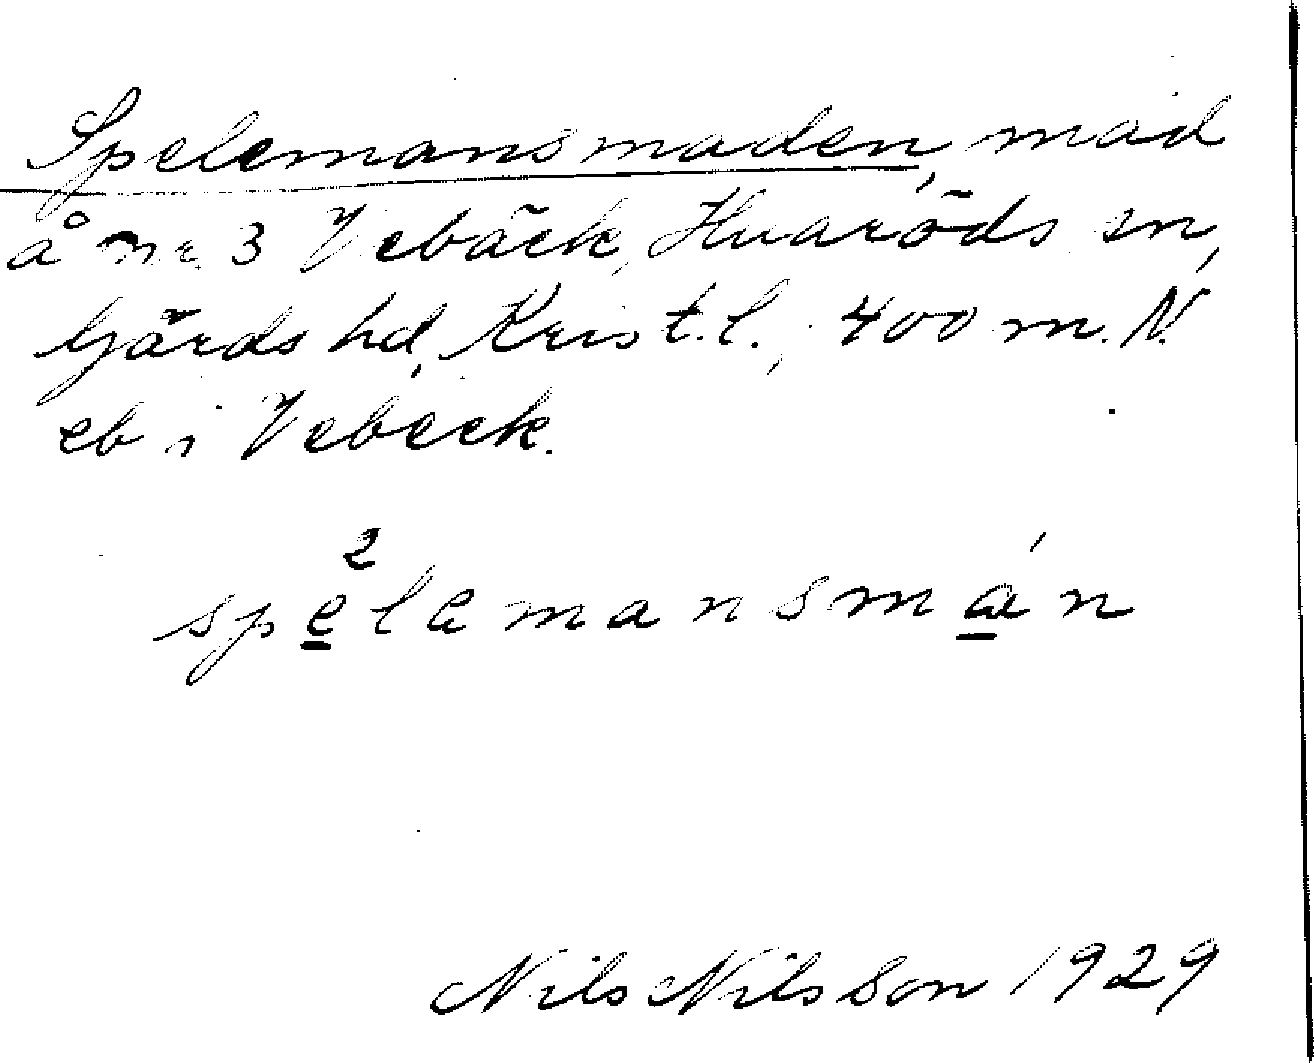 Spelemansmaden, mad
å nr 3 Vebäck, Huaröds sn,
Gärds hd, Krist.l., 400 m. N.
eb i Vebäck.
spe̲²lemansma̲´n
Nils Nilsson 1929